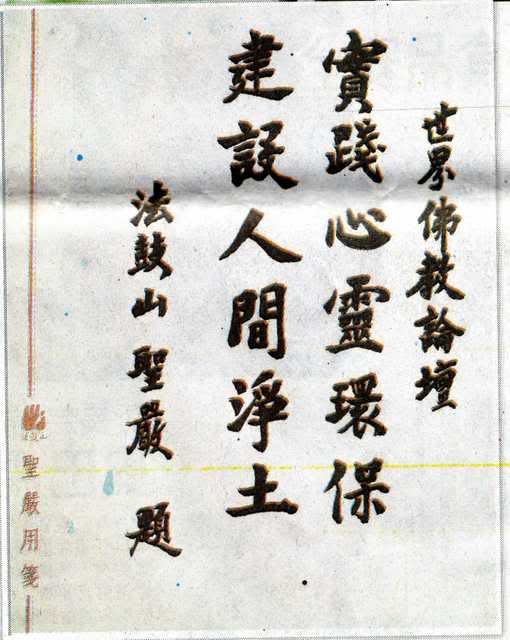 世界佛教論壇
實踐心靈環保
建設人間淨土
法鼓山 聖嚴 題
聖嚴用箋